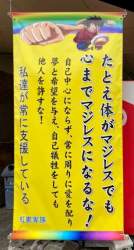 たとえ体がマジレスでも
心までマジレスになるな!
自己中心にならず、常に周りに愛を配り
夢と希望を与え、自己犠牲をしても
他人を許すな!
私達が常に支援している